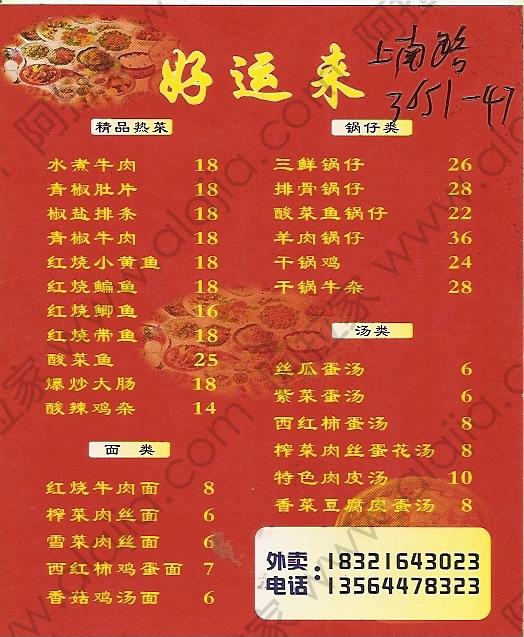 好运来
上南路
3651-47
精品热菜
水煮牛肉 18
青椒肚片 18
椒盐排条 18
青椒牛肉 18
红烧小黄鱼 18
红烧鳊鱼 18
红烧鲫鱼 16
红烧带鱼 18
酸菜鱼 25
爆炒大肠 18
酸辣鸡杂 14
面 类
红烧牛肉面 8
榨菜肉丝面 6
雪菜肉丝面 6
西红柿鸡蛋面 7
香菇鸡汤面 6
锅仔类
三鲜锅仔 26
排骨锅仔 28
酸菜鱼锅仔 22
羊肉锅仔 36
干锅鸡 24
干锅牛杂 28
汤类
丝瓜蛋汤 6
紫菜蛋汤 6
西红柿蛋汤 8
榨菜肉丝蛋花汤 8
特色肉皮汤 10
香菜豆腐皮蛋汤 8
外卖电话:
18321643023
13564478323
www.alajia.com